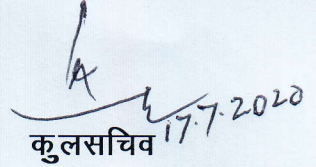 17.7.2020
कुलसचिव